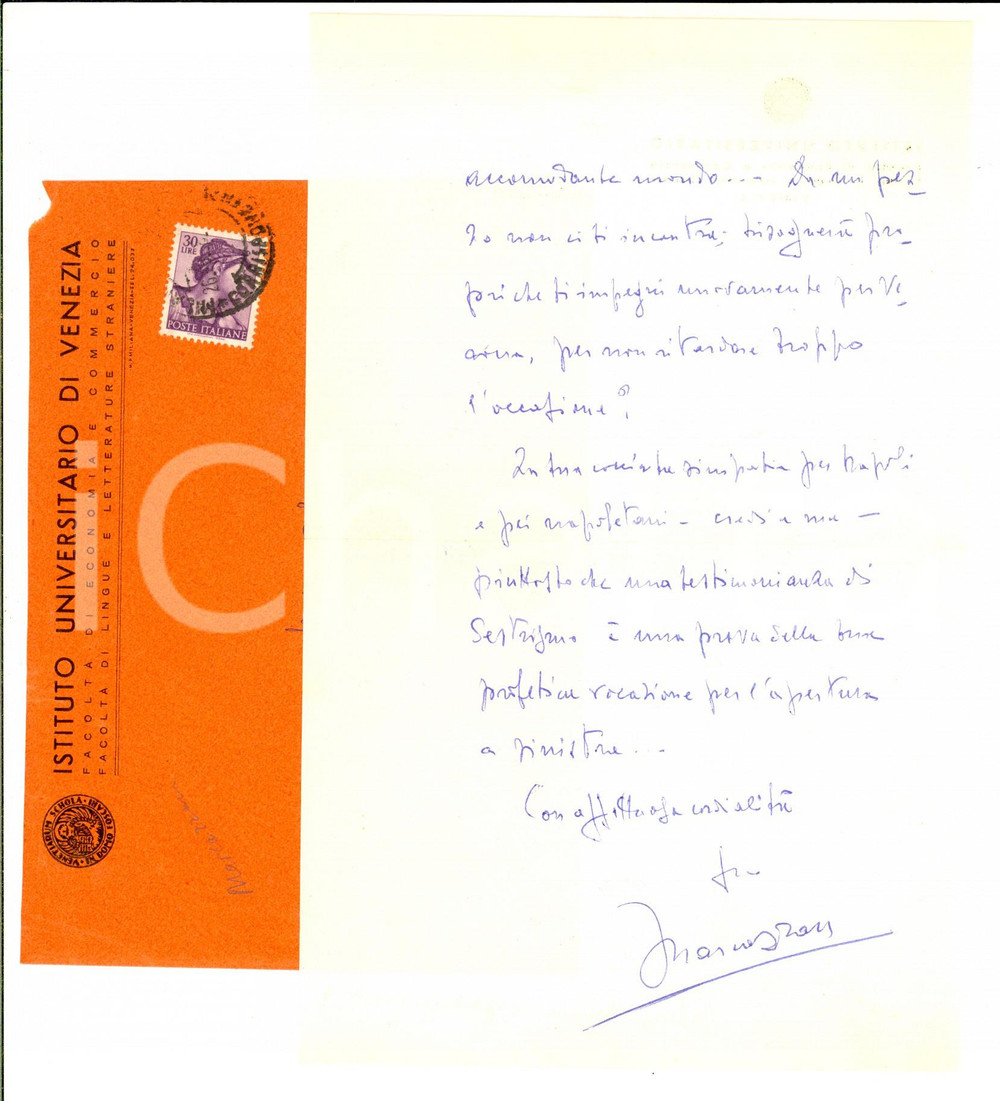 ISTITUTO UNIVERSITARIO DI VENEZIA
FACOLTÀ DI ECONOMIA E COMMERCIO
FACOLTÀ DI LINGUE E LETTERATURE STRANIERE
VENETIARUM SCHOLA
IN DOMO FOSCARI
30
LIRE
POSTE ITALIANE
iCh
accomodante mondo... Da un pez-
zo non ci si incontra; bisognerà pro-
prio che ti impegni nuovamente per Ve-
rona, per non ritardare troppo
l'occasione?
La tua cociuta simpatia per Napoli
e pei napoletani - credi a me -
piuttosto che una testimonianza di
è una prova della tua
profetica vocazione per l'apertura
a sinistra...
Con affettuosa cordialità
tuo